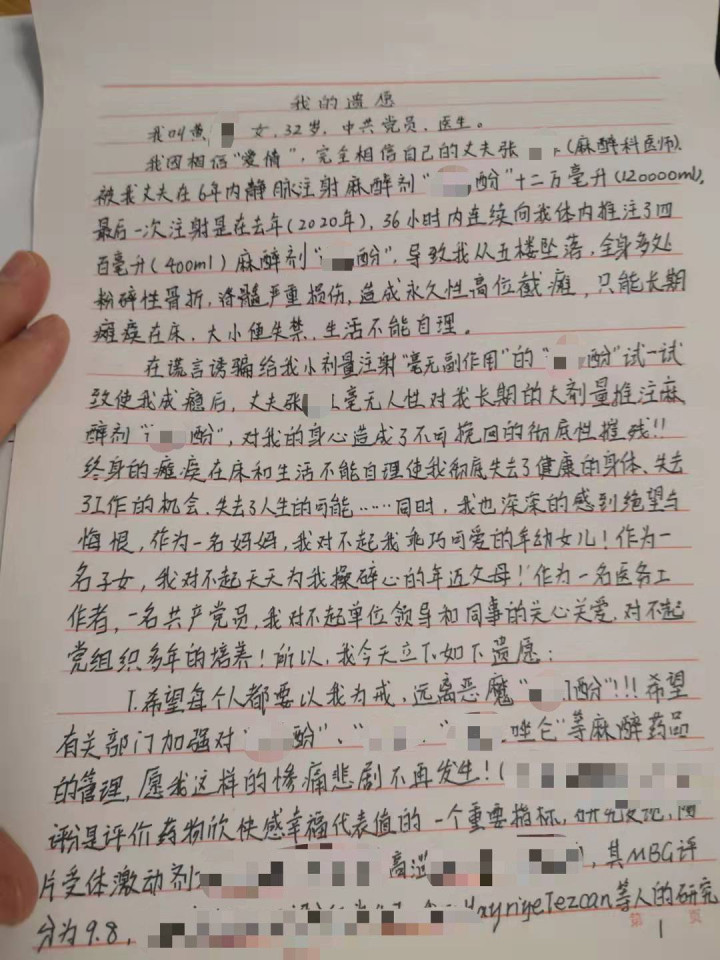 我的遗愿
我叫黄 女，32岁，中共党员，医生。
我因相信“爱情”，完全相信自己的丈夫张 （麻醉科医师），
被我丈夫在6年内静脉注射麻醉剂“ 酚”十二万毫升（120000ml），
最后一次注射是在去年（2020年），36小时内连续向我体内推注了四
百毫升（400ml）麻醉剂“ 酚”，导致我从五楼坠落，全身多处
粉碎性骨折，脊髓严重损伤，造成永久性高位截瘫，只能长期
瘫痪在床，大小便失禁，生活不能自理。
在谎言诱骗给我小剂量注射“毫无副作用”的“ 酚”试一试
致使我成瘾后，丈夫张 毫无人性对我长期的大剂量推注麻
醉剂“ 酚”，对我的身心造成了不可挽回的彻底性摧残！！
终身的瘫痪在床和生活不能自理使我彻底失去了健康的身体、失去
了工作的机会、失去了人生的可能……同时，我也深深的感到绝望与
悔恨，作为一名妈妈，我对不起我乖巧可爱的年幼女儿！作为一
名子女，我对不起天天为我操碎心的年迈父母！作为一名医务工
作者，一名共产党员，我对不起单位领导和同事的关心关爱，对不起
党组织多年的培养！所以，我今天立下如下遗愿：
1.希望每个人都要以我为戒，远离恶魔“ 酚”！！！希望
有关部门加强对“ 酚”、“ ”、“ 唑仑”等麻醉药品
的管理，愿我这样的惨痛悲剧不再发生！（
评分是评价药物欣快感幸福代表值的一个重要指标，研究发现，阿
片受体激动剂 高 ），其MBG评
分为9.8， Tezcan等人的研究
第 1 页